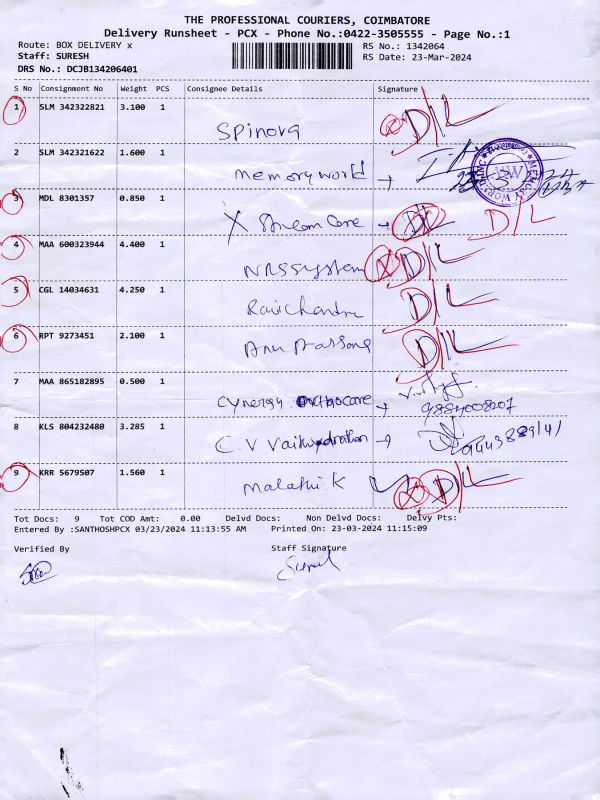 THE PROFESSIONAL COURIERS, COIMBATORE
Delivery Runsheet - PCX - Phone No.:0422-3505555 - Page No.:1
Route: BOX DELIVERY x RS No.: 1342064
Staff: SURESH RS Date: 23-Mar-2024
DRS No.: DCJB134206401
S No Consignment No Weight PCS Consignee Details Signature
1 SLM 342322821 3.100 1 Spinova D/L
2 SLM 342321622 1.600 1 memory world
3 MDL 8301357 0.850 1 X Care D/L D/L
4 MAA 600323944 4.400 1 NRSSystem D/L
5 CGL 14034631 4.250 1 Ravichandra D/L
6 RPT 9273451 2.100 1 D/L
7 MAA 865182895 0.500 1 Cynergy Orthocare 9884008207
8 KLS 804232480 3.285 1 C.V
9 KRR 5679507 1.560 1 Malathi.K D/L
Tot Docs: 9 Tot COD Amt: 0.00 Delvd Docs: Non Delvd Docs: Delvy Pts:
Entered By :SANTHOSHPCX 03/23/2024 11:13:55 AM Printed On: 23-03-2024 11:15:09
Verified By Staff Signature